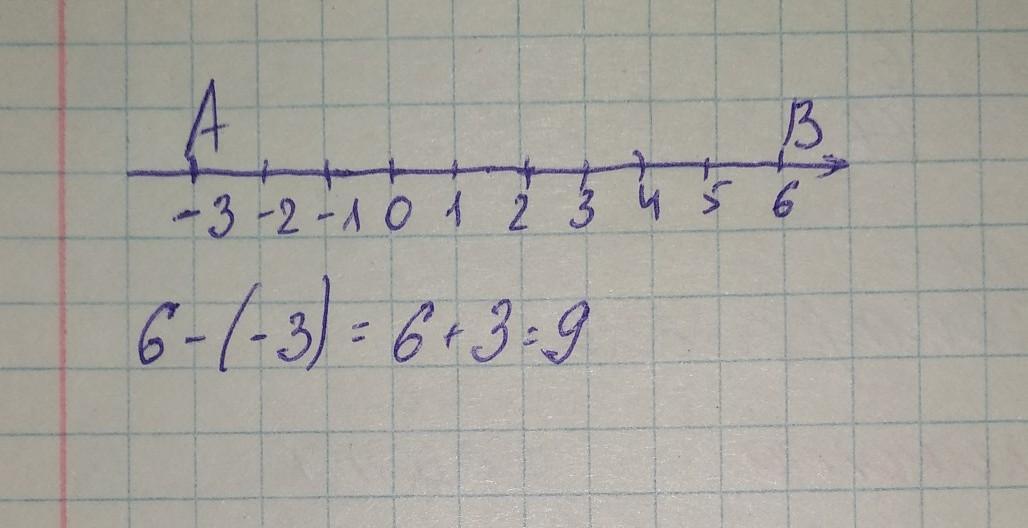 A B
-3 -2 -1 0 1 2 3 4 5 6
6-(-3)=6+3=9